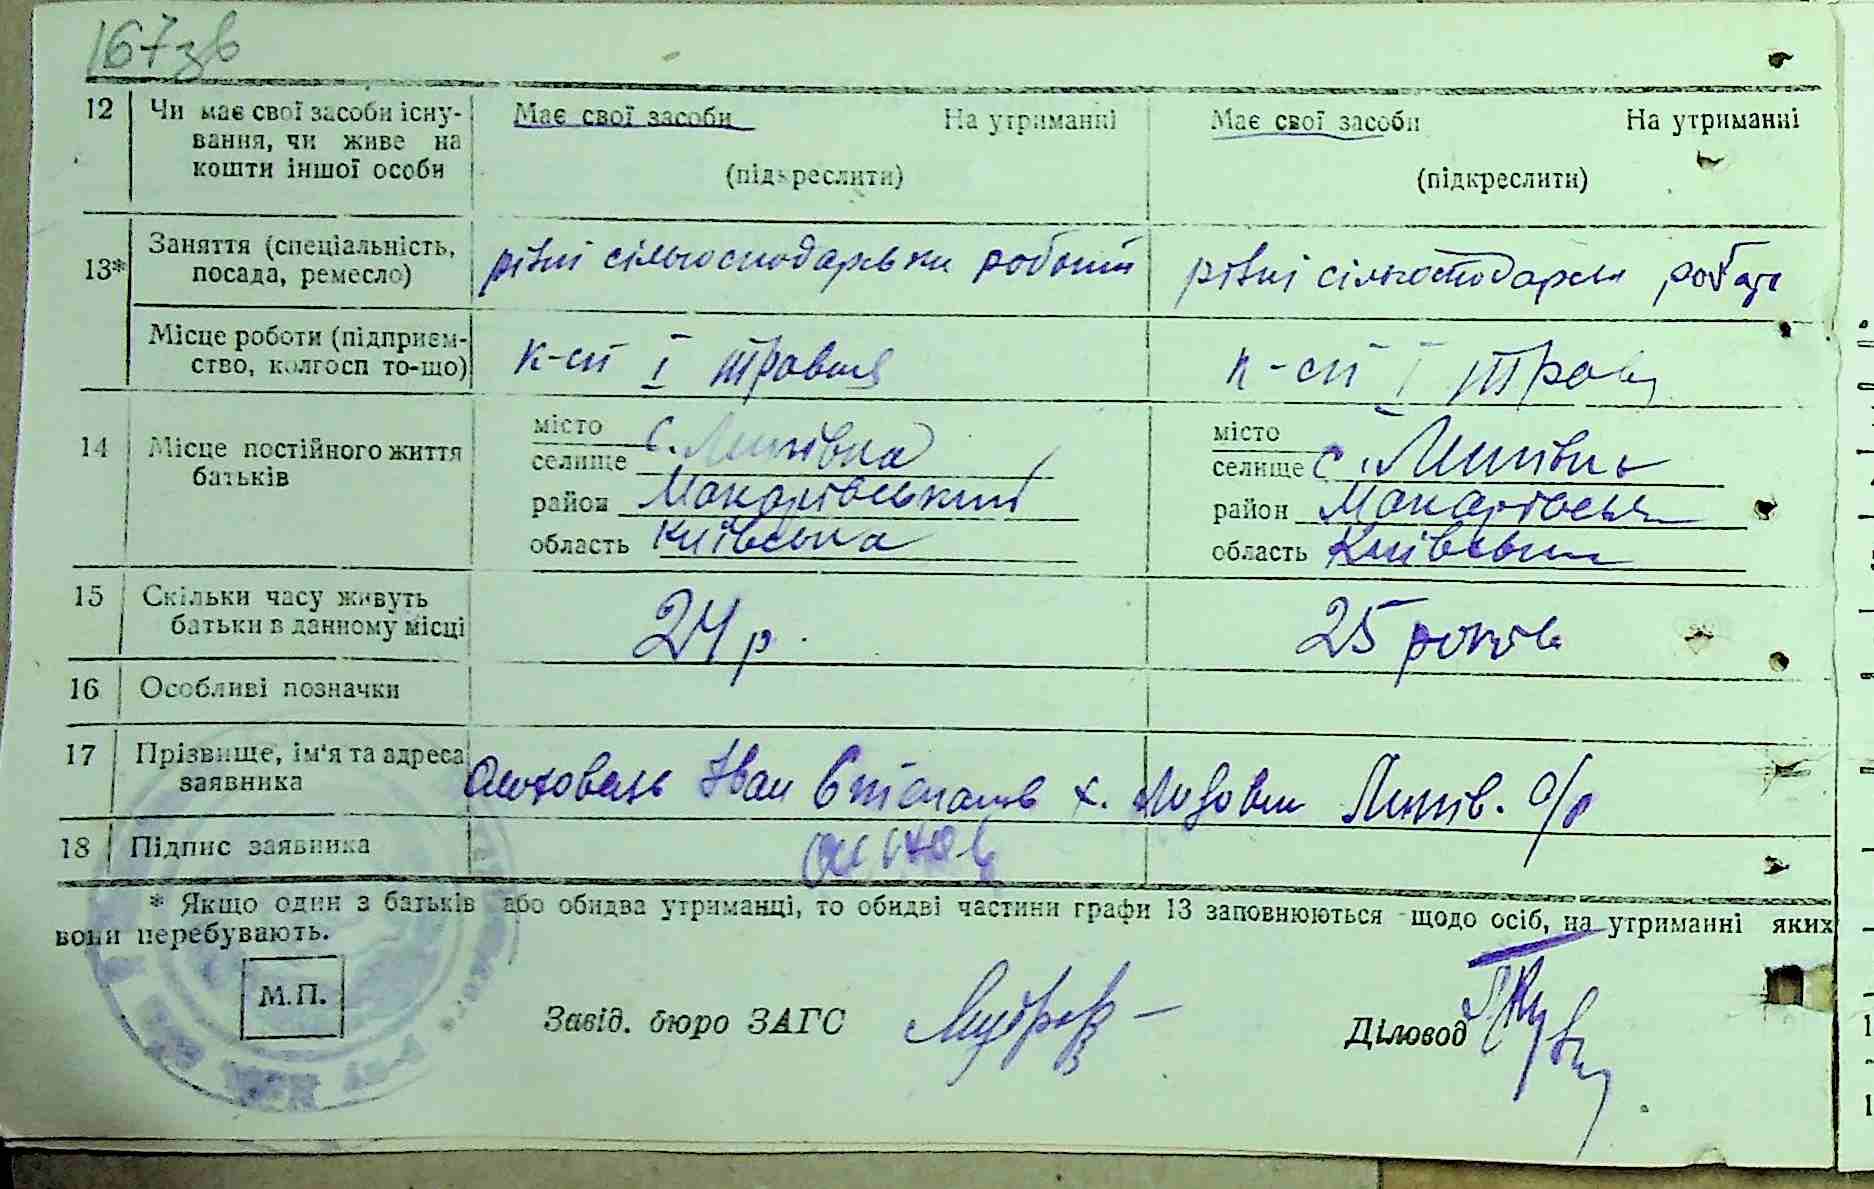 167зв
12 Чи має свої засоби існу- Має свої засоби На утриманні Має свої засоби На утриманні
вання, чи живе на
кошти іншої особи (підкреслити) (підкреслити)
13* Заняття (спеціальність,
посада, ремесло) рівні сільгосподарьки роботи рівні сільгосподарськ
Місце роботи (підприєм-
ство, колгосп то-що) к-сп І травня к-сп І трав
14 Місце постійного життя
батьків
місто місто
селище с. Липівка селище с. Липівка
район Макарівський район Макарівськ
область Київська область Київська
15 Скільки часу живуть
батьки в данному місці 24 р. 25 років
16 Особливі позначки
17 Прізвище, ім'я та адреса
заявника Іван х. Липів. с/р
18 Підпис заявника
* Якщо один з батьків або обидва утриманці, то обидві частини графи 13 заповнюються щодо осіб, на утриманні яких
вони перебувають.
М.П.
Завід. бюро ЗАГС Діловод